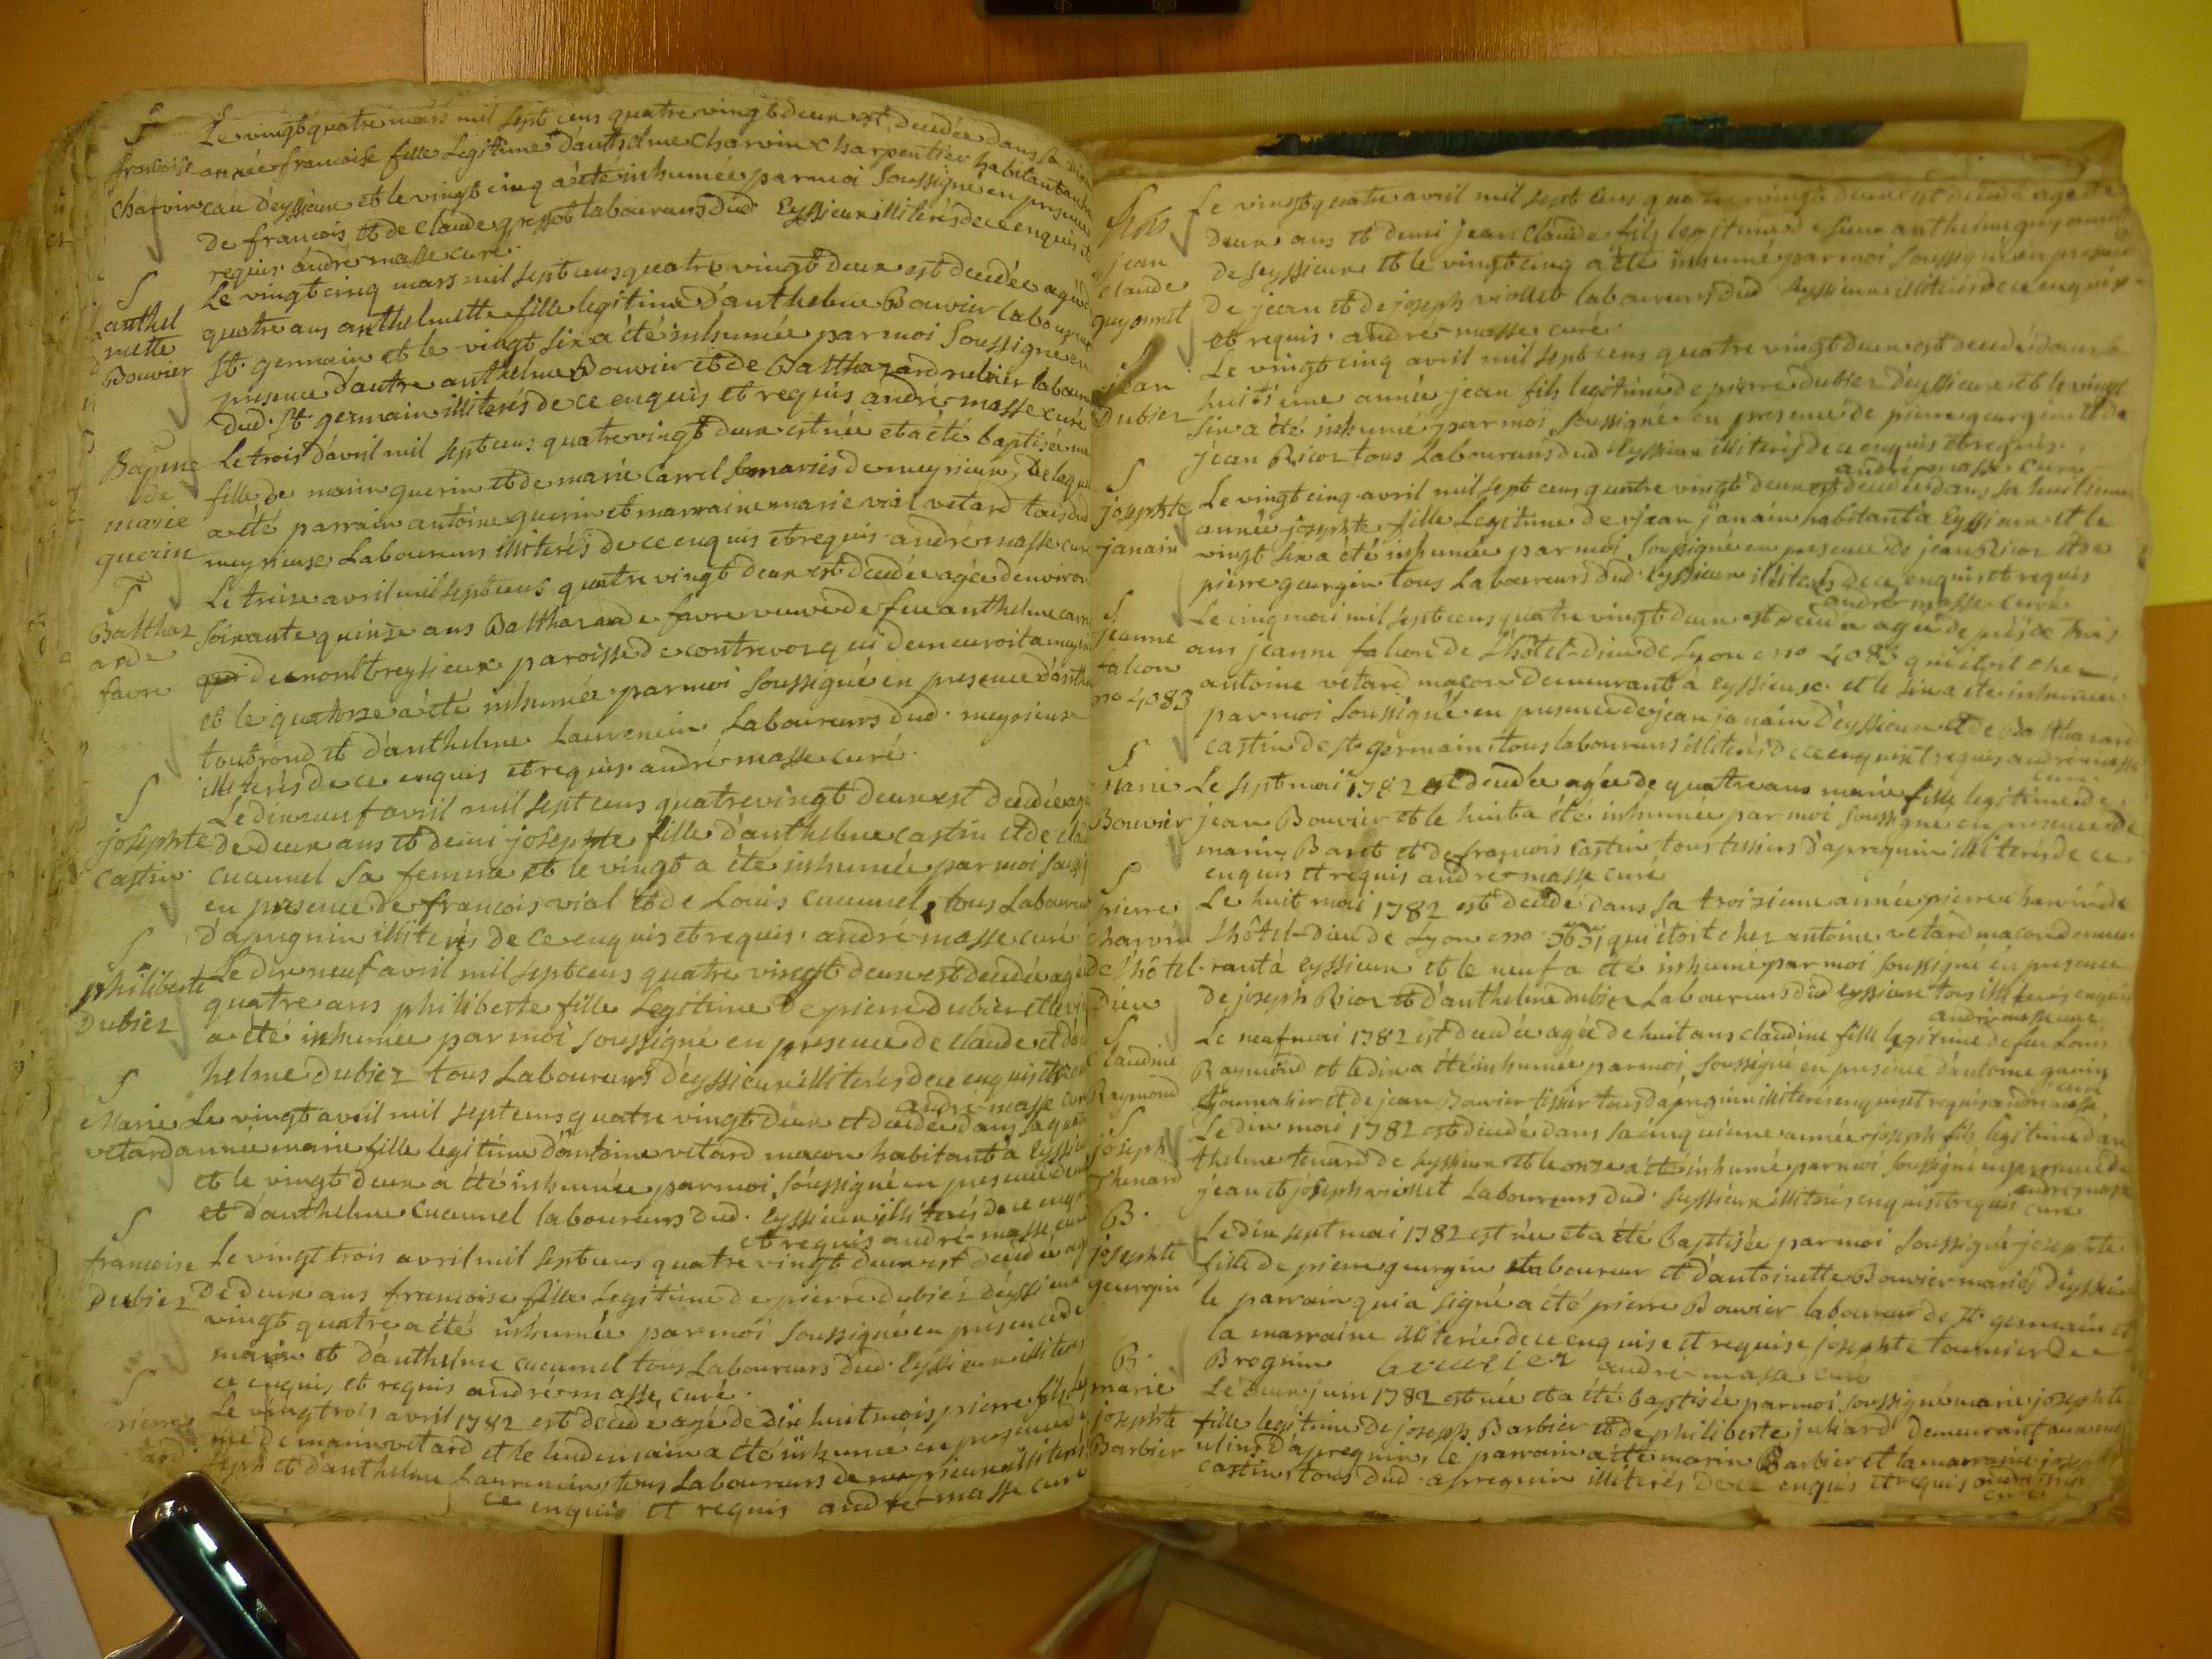 S
francoise
charvin
Le vingt quatre mars mil sept cens quatre vingt deux est decedée dans sa
année francoise fille legitime d'anthelme charvin charpentier habitant
eau d'eyssieux et le vingt cinq a été inhumée par moi soussigné en presence
de francois et de claude gressot laboureurs dud. Eyssieux illiterés de ce enquis et
requis. andré masse curé.
S
anthel
mette
Bouvier
Le vingt cinq mars mil sept cens quatre vingt deux est decedée agée
quatre ans anthelmette fille legitime d'anthelme Bouvier laboureur
St. germain et le vingt six a été inhumée par moi soussigné en
presence d'autre anthelme Bouvier et de Balthazard rubier
dud. St. germain illiterés de ce enquis et requis andré masse curé
Baptme
de
marie
guerin
Le trois d'avril mil sept cens quatre vingt deux est née et a été baptisée
fille de marin guerin et de marie Carrel mariés de meyrieux, De laquelle
a été parrain antoine guerin et marraine marie vial vetard tous dud
meyrieux Laboureurs illiterés de ce enquis et requis. andré masse curé
S
Balthaz
arde
favre
Le treize avril mil sept cens quatre vingt deux est decedée agée d'environ
soixante quinze ans Balthazarde favre veuve de feu anthelme
de montbreysieux paroisse de contrevoz qui demeuroit a
et le quatorze a été inhumée par moi soussigné en presence
toutrond et d'anthelme Laurencin Laboureurs dud. meyrieux
illiterés de ce enquis et requis. andré masse curé.
S
josephte
castin.
Le dix neuf avril mil sept cens quatre vingt deux est decedée
de deux ans et demi josephte fille d'anthelme castin et de
cucumel sa femme et le vingt a été inhumée par moi
en presence de francois vial et de Louis cucumel, tous Laboureurs
d'apregnin illiterés de ce enquis et requis. andré masse curé.
S
philiberte
Dubiez
Le dix neuf avril mil sept cens quatre vingt deux est decedée agée
quatre ans philiberte fille Legitime De pierre dubiez et le
a été inhumée par moi soussigné en presence de claude et
helme dubiez tous Laboureurs d'eyssieux illiterés de ce enquis et
andré masse curé
S
Marie
vetard
Le vingt avril mil sept cens quatre vingt deux est decedée dans sa
année marie fille legitime d'antoine vetard macon habitant a Eyssieux
et le vingt deux a été inhumée par moi soussigné en presence
et d'anthelme Cucumel laboureurs dud. Eyssieux illiterés de ce enquis
et requis andré masse curé
S
francoise
Dubiez
Le vingt trois avril mil sept cens quatre vingt deux est decedée
De deux ans francoise fille Legitime de pierre dubiez d'eyssieux
vingt quatre a été inhumée par moi soussigné en presence de
marin et d'anthelme cucumel tous Laboureurs dud. Eyssieux illiterés
ce enquis et requis andré masse, curé.
S
pierre
Le vingt trois avril 1782 est decedé agé de dix huit mois pierre fils
me de marin vetard et le lendemain a été inhumé en presence de
seph et d'anthelme Laurencin tous Laboureurs de meyrieux illiterés
ce enquis et requis andré masse curé
jean
claude
guyonnet
Le vingt quatre avril mil sept cens quatre vingt deux est decedé agé de
deux ans et demi jean claude fils legitime de sieur anthelme guyonnet
de Seyssieux et le vingt cinq a été inhumé par moi soussigné en presence
de jean et de joseph viollet laboureurs dud. Seyssieux illiterés de ce enquis
et requis. andré masse curé.
S
jean
Dubiez
Le vingt cinq avril mil sept cens quatre vingt deux est decedé dans sa
huitième année jean fils legitime de pierre dubiez d'eyssieux et le vingt
six a été inhumé par moi soussigné en presence de pierre georgin et de
jean Ricoz tous Laboureurs dud. Eyssieux illiterés de ce enquis et requis.
andré masse curé
S
josephte
janain
Le vingt cinq avril mil sept cens quatre vingt deux est decedée dans sa huitieme
année josephte fille Legitime de jean janain habitant a Eyssieux et le
vingt six a été inhumée par moi soussigné en presence de jean Ricoz et de
pierre georgin tous Laboureurs dud. Eyssieux illiterés de ce enquis et requis
andré masse curé
S
jeanne
falcon
no 4083
Le cinq mai mil sept cens quatre vingt deux est decedée agée de près de trois
ans jeanne falcon de L'hôtel-dieu de Lyon no 4083 qui étoit chez
antoine vetard macon demeurant à Eyssieux et le six a été inhumée
par moi soussigné en presence de jean janain d'eyssieux et de Balthazard
castin de St. germain tous laboureurs illiterés de ce enquis et requis andré masse
curé.
S
Marie
Bouvier
Le sept mai 1782 est decedée agée de quatre ans marie fille legitime de
jean Bouvier et le huit a été inhumée par moi soussigné en presence de
marin Baret et de francois Castin tous tissiers d'apregnin illiterés de ce
enquis et requis andré masse curé
S
pierre
charvin
de l'hôtel
Dieu
Le huit mai 1782 est decedé dans sa troisieme année pierre charvin de
L'hôtel-dieu de Lyon no. 5651 qui étoit chez antoine vetard macon demeu
rant à Eyssieux et le neuf a été inhumé par moi soussigné en presence
de joseph Ricoz et d'anthelme dubiez Laboureurs dud Eyssieux tous illiterés enquis
andré masse curé
S
Claudine
Raymond
Le neuf mai 1782 est decedée agée de huit ans claudine fille legitime de feu Louis
Raymond et le dix a été inhumée par moi soussigné en presence d'antoine guerin
et de jean Bouvier tissier tous d'apregnin illiterés enquis et requis andré masse
curé
S
joseph
Thenard
Le dix mai 1782 est decedé dans sa cinquieme année joseph fils legitime d'an
thelme tenard de Seyssieux et le onze a été inhumé par moi soussigné en presence de
jean et joseph viollet Laboureurs dud. Seyssieux illiterés enquis et requis andré masse
curé
B.
josephte
georgin
Le dix sept mai 1782 est née et a été baptisée par moi soussigné josephte
fille de pierre georgin laboureur et d'antoinette Bouvier mariés d'eyssieux
le parrain qui a signé a été pierre Bouvier laboureur de St. germain et
la marraine illiterée de ce enquise et requise josephte tournier de
Brognin Bouvier andré masse curé
B.
marie
josephte
Barbier
Le deux juin 1782 est née et a été baptisée par moi soussigné marie josephte
fille legitime de joseph Barbier et de philiberte juliard demeurant aux
ulins d'apregnin, le parrain a été marin Barbier et la marraine josephte
castin tous dud. apregnin illiterés de ce enquis et requis andré masse
curé